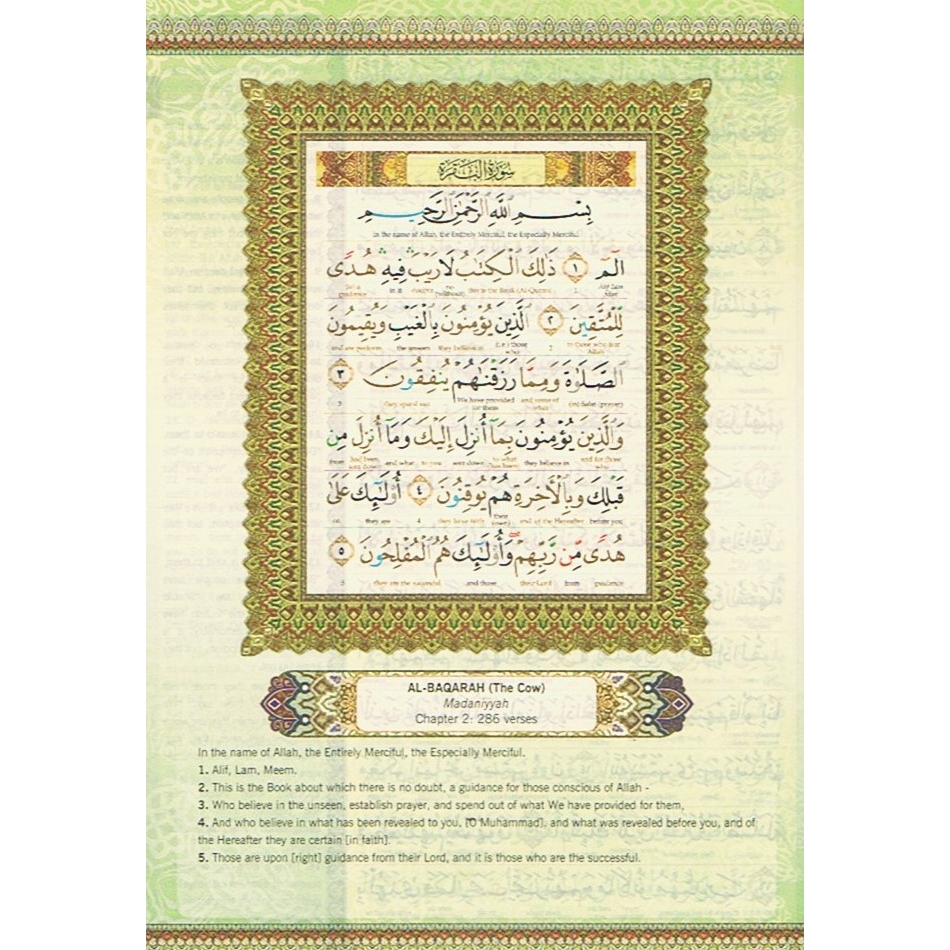 سورة البقرة
بِسْمِ ٱللَّهِ ٱلرَّحْمَٰنِ ٱلرَّحِيمِ
In the name of Allah, the Entirely Merciful, the Especially Merciful.
الٓمٓ ١ ذَٰلِكَ ٱلْكِتَٰبُ لَا رَيْبَ فِيهِ هُدًى
this is the Book (Al-Quran)
لِّلْمُتَّقِينَ ٢ ٱلَّذِينَ يُؤْمِنُونَ بِٱلْغَيْبِ وَيُقِيمُونَ
to those who fear Allah 2 (i.e.) those who they believe in the unseen and are perform
ٱلصَّلَوٰةَ وَمِمَّا رَزَقْنَٰهُمْ يُنفِقُونَ ٣
and some of what We have provided for them they spend out 3
وَٱلَّذِينَ يُؤْمِنُونَ بِمَآ أُنزِلَ إِلَيْكَ وَمَآ أُنزِلَ مِن
and for those who they believe in to what sent down to you and what from
قَبْلِكَ وَبِٱلْأَخِرَةِ هُمْ يُوقِنُونَ ٤ أُو۟لَٰٓئِكَ عَلَىٰ
before you and of the Hereafter they have faith 4 they are on
هُدًى مِّن رَّبِّهِمْ ۖ وَأُو۟لَٰٓئِكَ هُمُ ٱلْمُفْلِحُونَ ٥
guidance from their Lord and those they are the successful 5
AL-BAQARAH (The Cow)
Madaniyyah
Chapter 2: 286 verses
In the name of Allah, the Entirely Merciful, the Especially Merciful.
1. Alif, Lam, Meem.
2. This is the Book about which there is no doubt, a guidance for those conscious of Allah -
3. Who believe in the unseen, establish prayer, and spend out of what We have provided for them,
4. And who believe in what has been revealed to you, [O Muhammad], and what was revealed before you, and of
the Hereafter they are certain [in faith].
5. Those are upon [right] guidance from their Lord, and it is those who are the successful.